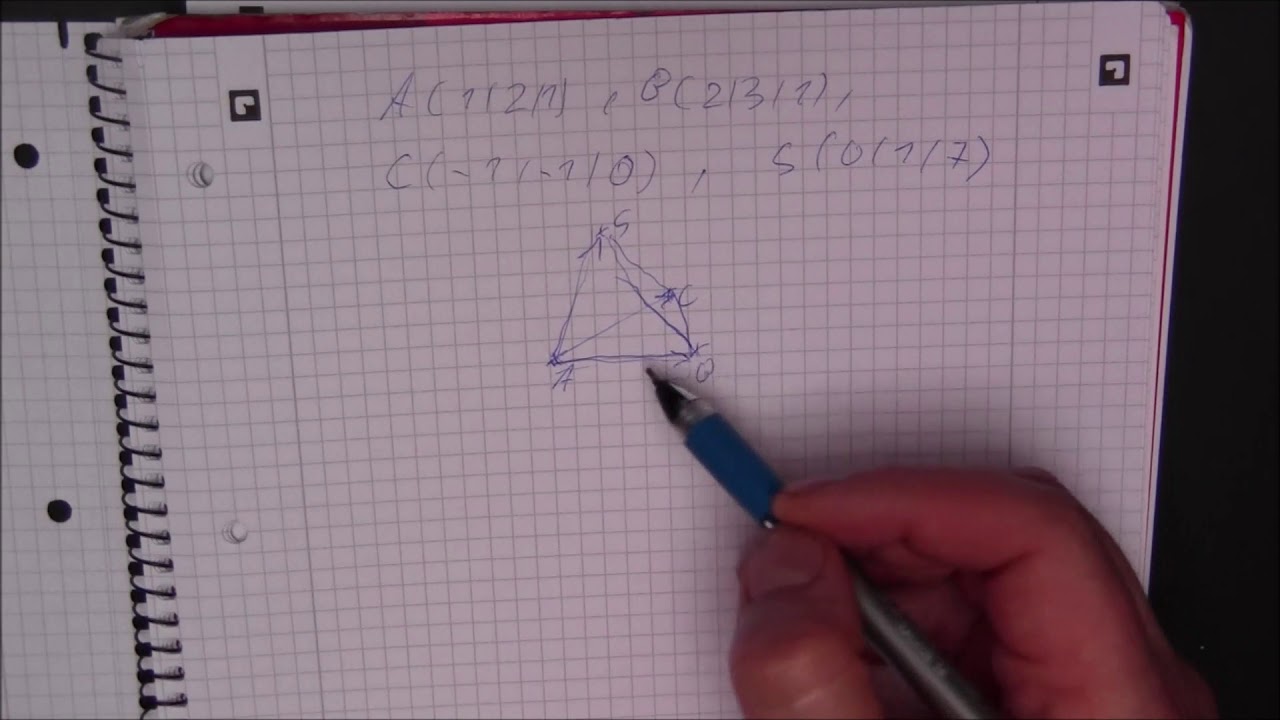 A(1|2|1), B(2|3|1),
C(-1|-1|0), S(0|1|7)
S
C
A B